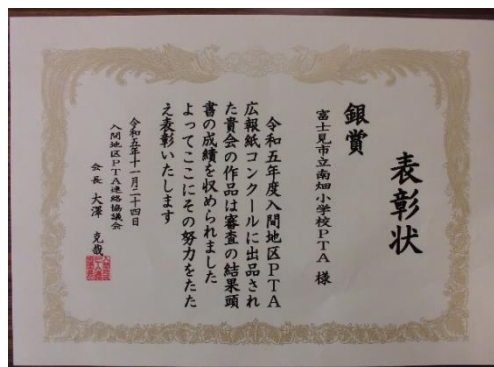 表彰状
銀賞
富士見市立南畑小学校PTA 様
令和五年度入間地区PTA
広報紙コンクールに出品され
た貴会の作品は審査の結果頭
書の成績を収められました
よってここにその努力をたた
え表彰いたします
令和五年十一月二十四日
入間地区PTA連絡協議会
会長 大澤 克哉